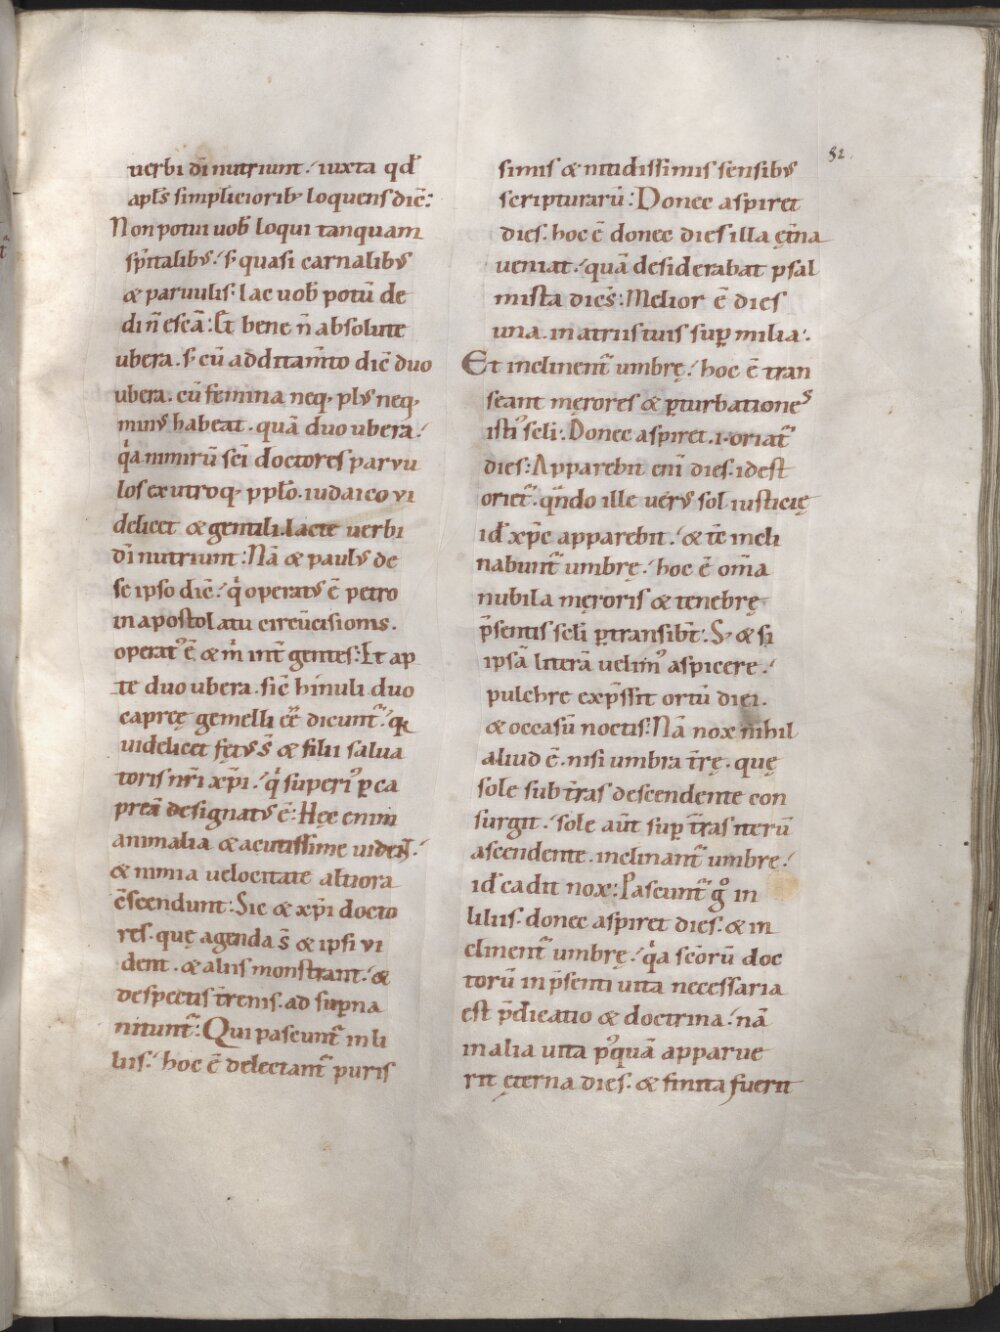 uerbi dī nutriunt .' iuxta qđ
apłs simplicioribꝰ loquens dic̄:
Non potui uob̄ loqui tanquam
sp̄italibꝰ .' sꝫ quasi carnalibꝰ
& paruulis . lac uob̄ potū de
di n̄ escā : Et bene n̄ absolute
ubera . sꝫ cū additam̄to dic̄ duo
ubera . cū femina neq; plꝰ neq;
minꝰ habeat . quā duo ubera .'
qͣa nimirū sc̄i doctores paruu
los ex utroq; ppło . iudaico ui
delicet & gentili . lacte uerbi
dī nutriunt : Nā & paulꝰ de
se ipso dic̄ .' qͥ operatꝰ ē petro
in apostolatu circūcisionis .
operatꝰ ē & m̍ int̄ gentes : Et ap
te duo ubera . sic̄ hinuli duo
capreę gemelli ēē dicunt᷑ .' qꝛ
uidelicet fętꝰ s̄ & filii salua
toris nr̄i xp̄i .' qͥ superiꝰ p̱ ca
preā designatꝰ ē : Hęc enim
animalia & acutissime uident .'
& nimia uelocitate altiora
c̄scendunt : Sic & xp̄i docto
res . quę agenda s̄ & ipsi ui
dent . & aliis monstrant .' &
despectis t̄renis . ad sup̱na
nitunt᷑ : Qui pascunt᷑ in li
liis .' hoc ē delectant᷑ puris
52.
simis & nitidissimis sensibꝰ
scripturarū : Donec aspiret
dies . hoc ē donec dies illa ęt̄na
ueniat .' quā desiderabat psal
mista dicēs : Melior ē dies
una . in atriis tuis sup̱ milia :
Et inclinent᷑ umbrę .' hoc ē tran
seant męrores & p̱turbationes
istiꝰ sc̄li : Donec aspiret . i . oriat᷑
dies : Apparebit enī dies . id est
oriet᷑ . qn̄do ille uerꝰ sol iusticię
id̄ xp̄c apparebit .' & tc̄ incli
nabunt᷑ umbrę .' hoc ē om̄a
nubila męroris & tenebrę
p̄sentis sc̄li p̱transibt̄ . Sꝫ & si
ipsā literā uelimꝰ aspicere .'
pulchre exp̄ssit ortū diei .
& occasū noctis : Nā nox nihil
aliud ē . nisi umbra t̄rę . quę
sole sub t̄ras descendente con
surgit .' sole aūt sup̱ t̄ras iterū
ascendente . inclinant᷑ umbrę .'
id̄ cadit nox : Pascunt᷑ gͦ in
liliis . donec aspiret dies . & in
clinent᷑ umbrę .' qͣa sc̄orū doc
torū in p̄senti uita necessaria
est p̄dicatio & doctrina .' nā
in alia uita pꝰquā apparue
rit ęterna dies . & finita fuerit